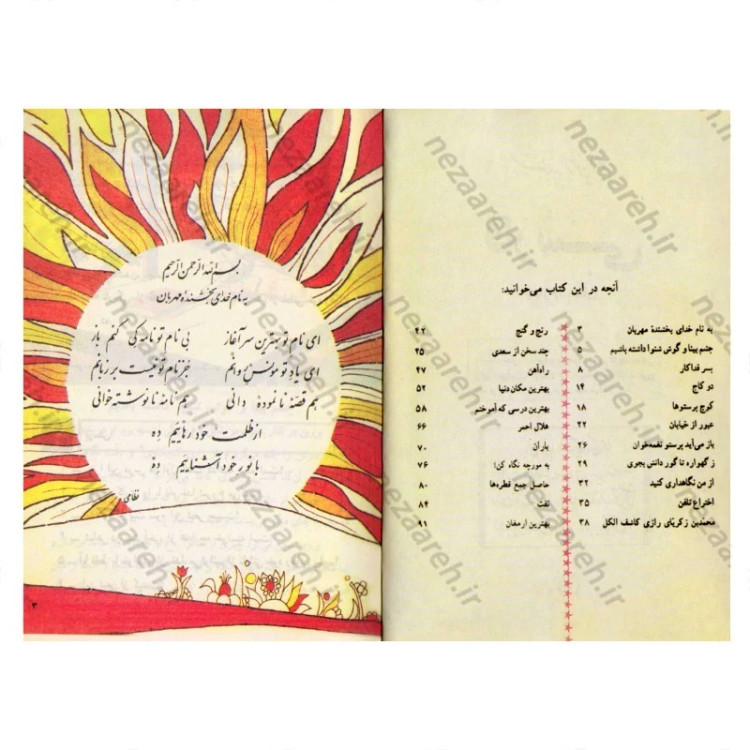 آنچه در این کتاب می‌خوانید:
به نام خدای بخشندهٔ مهربان ۳
چشم بینا و گوش شنوا داشته باشیم ۵
پسر فداکار ۸
دو کاج ۱۴
کوچ پرستوها ۱۸
عبور از خیابان ۲۲
باز می‌آید پرستو نغمه‌خوان ۲۶
ز گهواره تا گور دانش بجوی ۲۹
از من نگاهداری کنید ۳۲
اختراع تلفن ۳۵
محمدبن زکریّای رازی کاشف الکل ۳۸
رنج و گنج ۴۲
چند سخن از سعدی ۴۵
راه‌آهن ۴۷
بهترین مکان دنیا ۵۲
بهترین درسی که آموختم ۵۸
هلال احمر ۶۶
باران ۷۰
به مورچه نگاه کن! ۷۶
حاصل جمع قطره‌ها ۸۰
نفت ۸۴
بهترین ارمغان ۹۱
بسم الله الرحمن الرحیم
به نام خدای بخشندهٔ مهربان
ای نام تو بهترین سرآغاز بی نام تو نامه کی کنم باز
ای یاد تو مونس روانم جز نام تو نیست بر زبانم
هم قصهٔ نانموده دانی هم نامهٔ نانوشته خوانی
از ظلمت خود رهاییم ده
با نور خود آشناییم ده
نظامی
۳
nezaareh.ir
nezaareh.ir
nezaareh.ir
nezaareh.ir
nezaareh.ir
nezaareh.ir
nezaareh.ir
nezaareh.ir